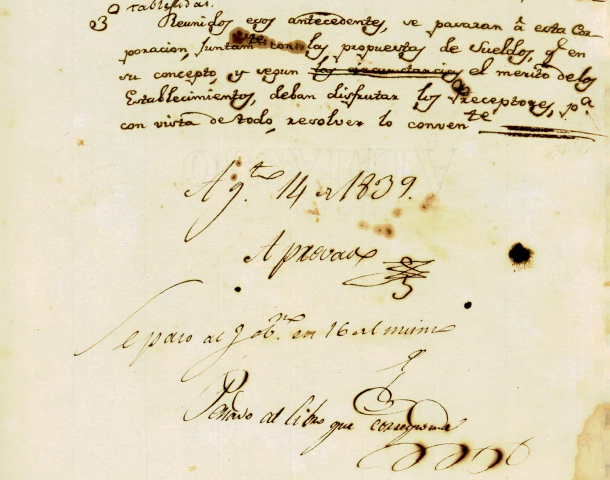 tablecidas.
3º Reunidos esos antecedentes, se pasaran á esta Cor
poracion, juntamte con las propuestas de Sueldos, q.e en
su concepto, y segun las circunstancias, el merito de los
Establecimientos, deban disfrutar los Preceptores, p.a
con vista de todo, resolver lo convente
Ag.to 14 de 1839.
Aprovado
Se paso al Gob.no en 16 del mismo
Pasado al libro que corresponde